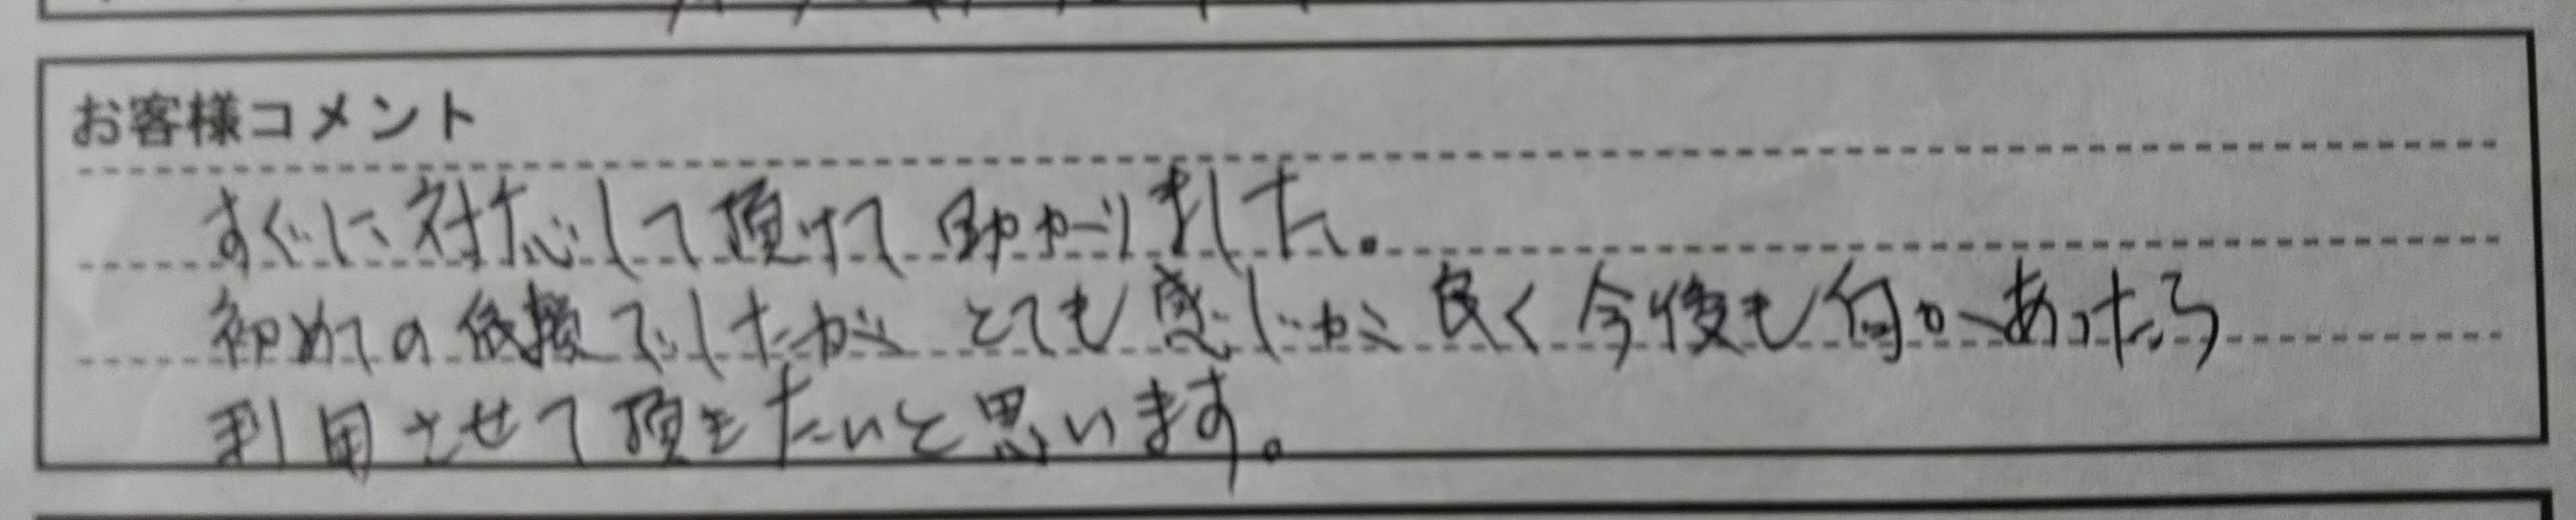 お客様コメント
すぐに対応して頂けて助かりました。
初めての依頼でしたがとても感じが良く今後も何かあったら
利用させて頂きたいと思います。